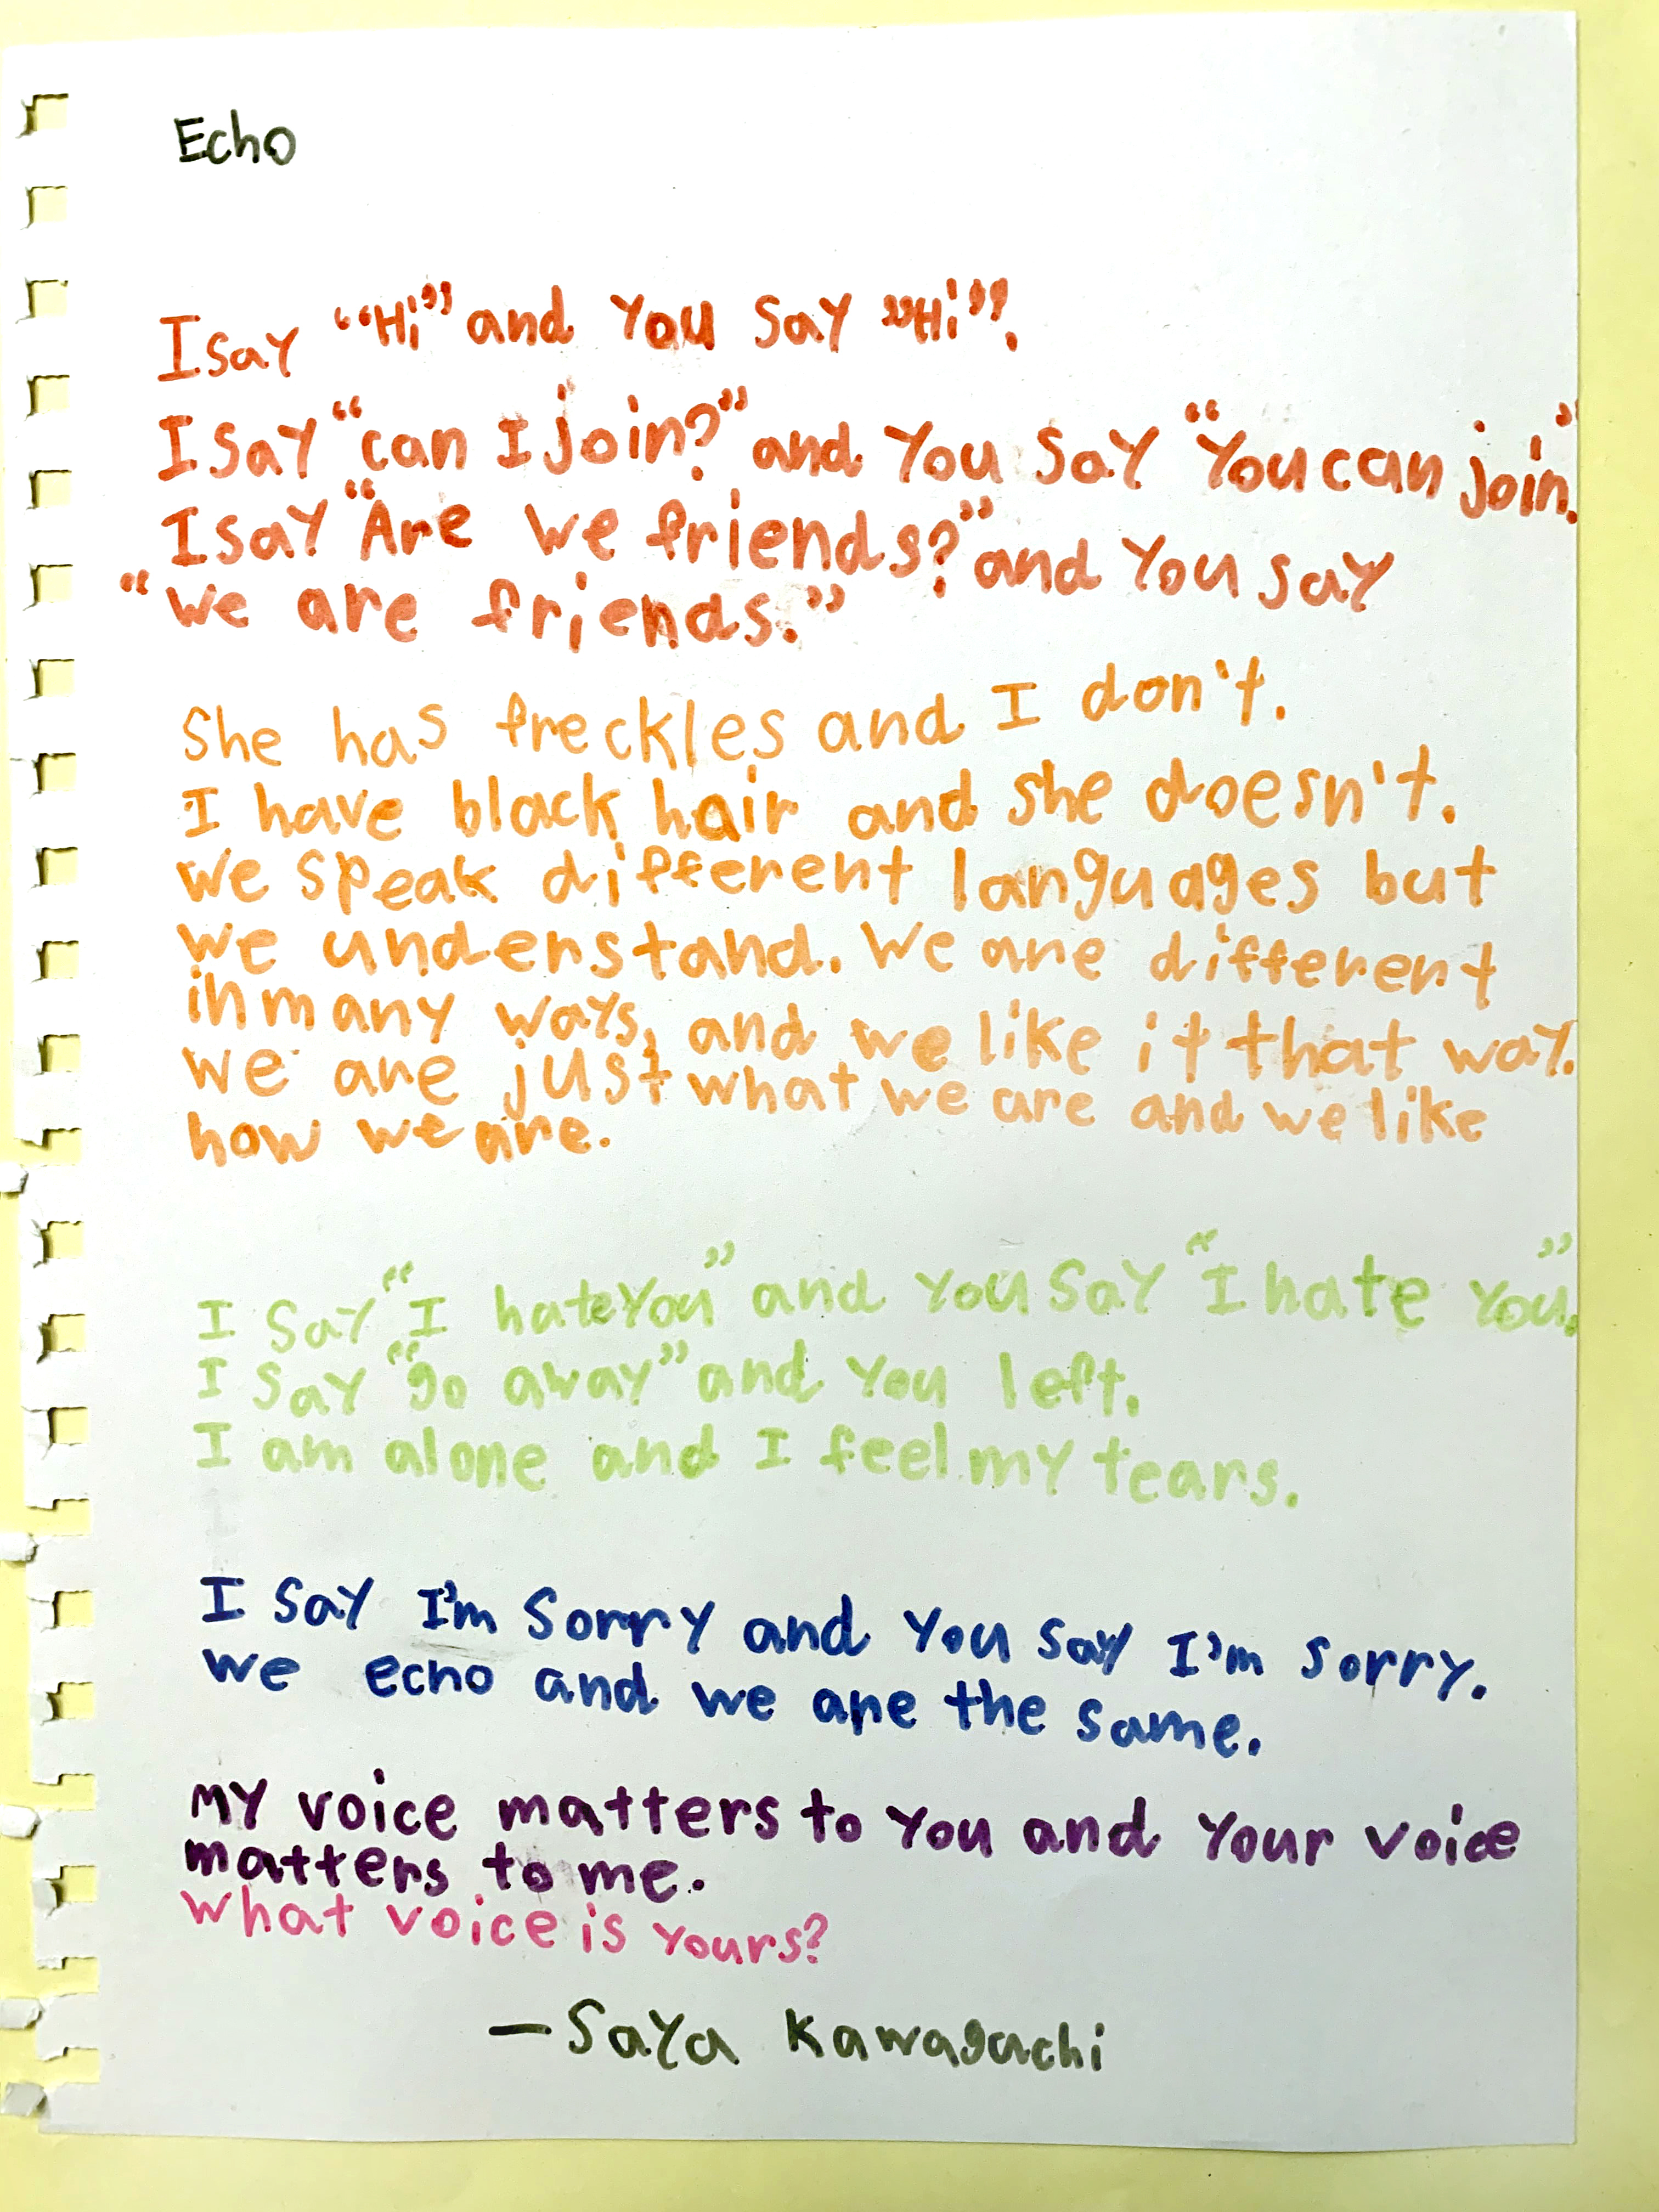 Echo
I say “Hi” and You say ”Hi”.
I say “can I join?” and You say “You can join.”
I say “Are we friends?” and You say
“we are friends.”
She has freckles and I don't.
I have black hair and she doesn't.
we speak different languages but
we understand. We are different
in many ways, and we like it that way.
we are just what we are and we like
how we are.
I say “I hate You” and You say “I hate You.”
I say “go away” and You left.
I am alone and I feel my tears.
I say I'm sorry and You say I'm sorry.
we echo and we are the same.
My voice matters to You and Your voice
matters to me.
What voice is yours?
—Saya Kawaguchi